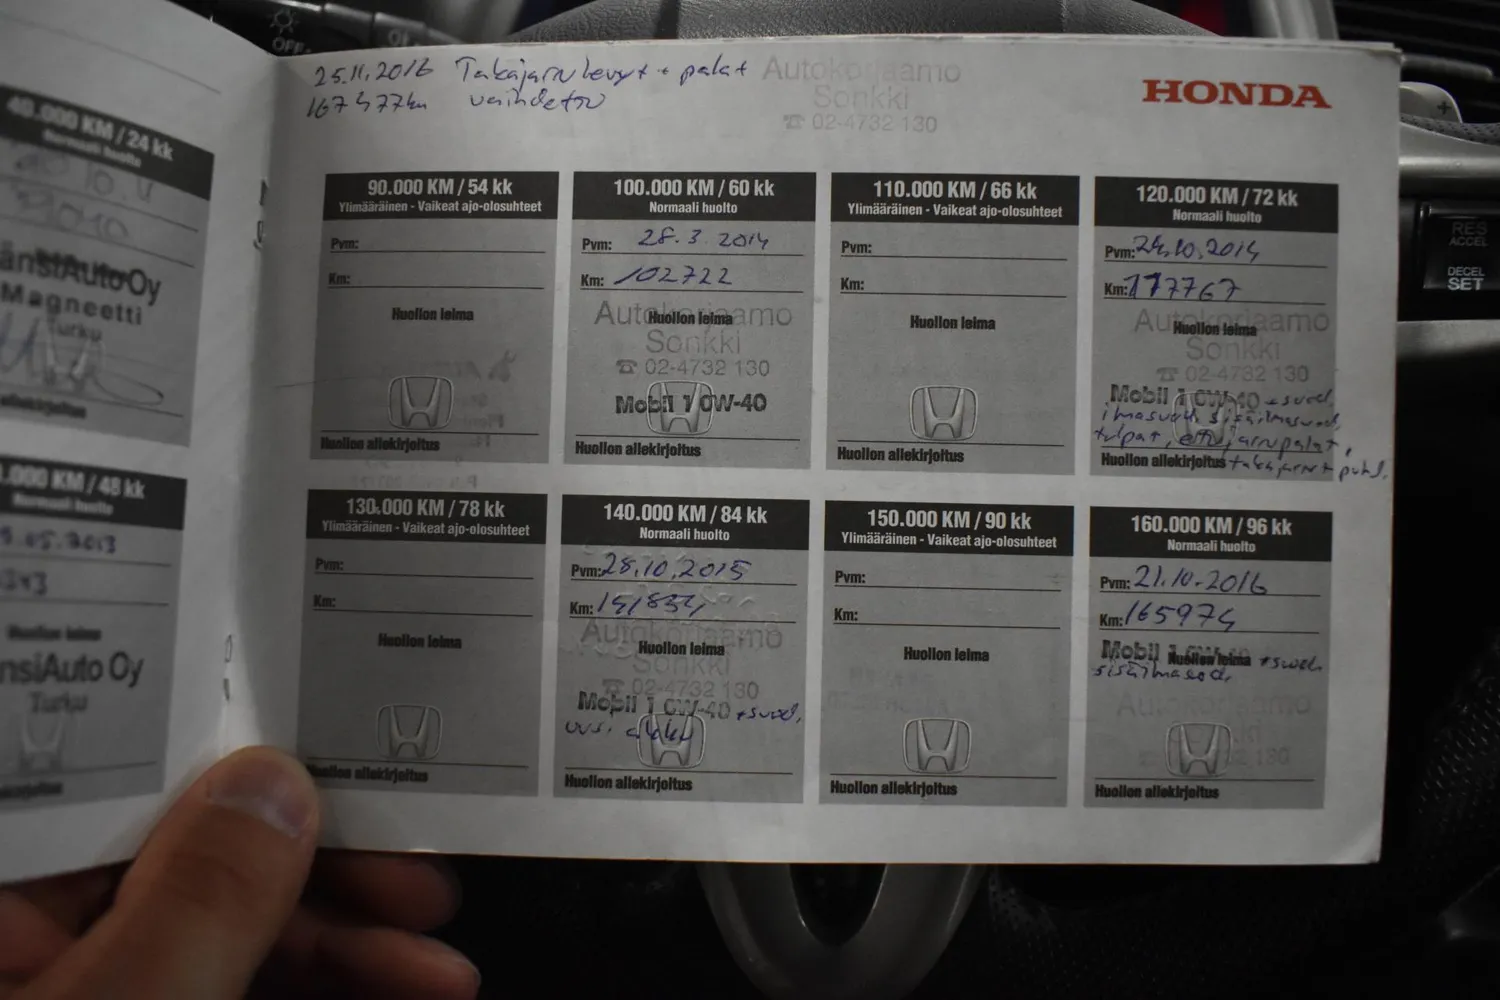 OFF
40.000 KM / 24 kk
Normaali huolto
änsiAuto Oy
Magneetti
Turku
allekirjoitus
.000 KM / 48 kk
Normaali huolto
.05.2013
Huollon leima
nsiAuto Oy
Turku
25.11.2016 Takajarrulevyt + palat
167477km vaihdettu
Autokorjaamo
Sonkki
☎ 02-4732 130
HONDA
90.000 KM / 54 kk
Ylimääräinen - Vaikeat ajo-olosuhteet
Pvm:
Km:
Huollon leima
Huollon allekirjoitus
100.000 KM / 60 kk
Normaali huolto
Pvm: 28.3.2014
Km: 102722
Autokorjaamo
Huollon leima
Sonkki
☎ 02-4732 130
Mobil 1 0W-40
Huollon allekirjoitus
110.000 KM / 66 kk
Ylimääräinen - Vaikeat ajo-olosuhteet
Pvm:
Km:
Huollon leima
Huollon allekirjoitus
120.000 KM / 72 kk
Normaali huolto
Pvm: 24.10.2014
Km: 117767
Autokorjaamo
Huollon leima
Sonkki
☎ 02-4732 130
Mobil 1 0W-40 + suod,
ilmasuod, sisäilmasuod,
tulpat, etujarrupalat,
Huollon allekirjoitus
130.000 KM / 78 kk
Ylimääräinen - Vaikeat ajo-olosuhteet
Pvm:
Km:
Huollon leima
Huollon allekirjoitus
140.000 KM / 84 kk
Normaali huolto
Pvm: 28.10.2015
Km: 141834
Autokorjaamo
Huollon leima
Sonkki
☎ 02-4732 130
Mobil 1 0W-40 + suod,
uusi akku
Huollon allekirjoitus
150.000 KM / 90 kk
Ylimääräinen - Vaikeat ajo-olosuhteet
Pvm:
Km:
Huollon leima
Huollon allekirjoitus
160.000 KM / 96 kk
Normaali huolto
Pvm: 21.10.2016
Km: 165974
Mobil 1 0W-40 + suod.
Huollon leima
sisäilmasuod.
Autokorjaamo
Huollon allekirjoitus
RES
ACCEL
DECEL
SET